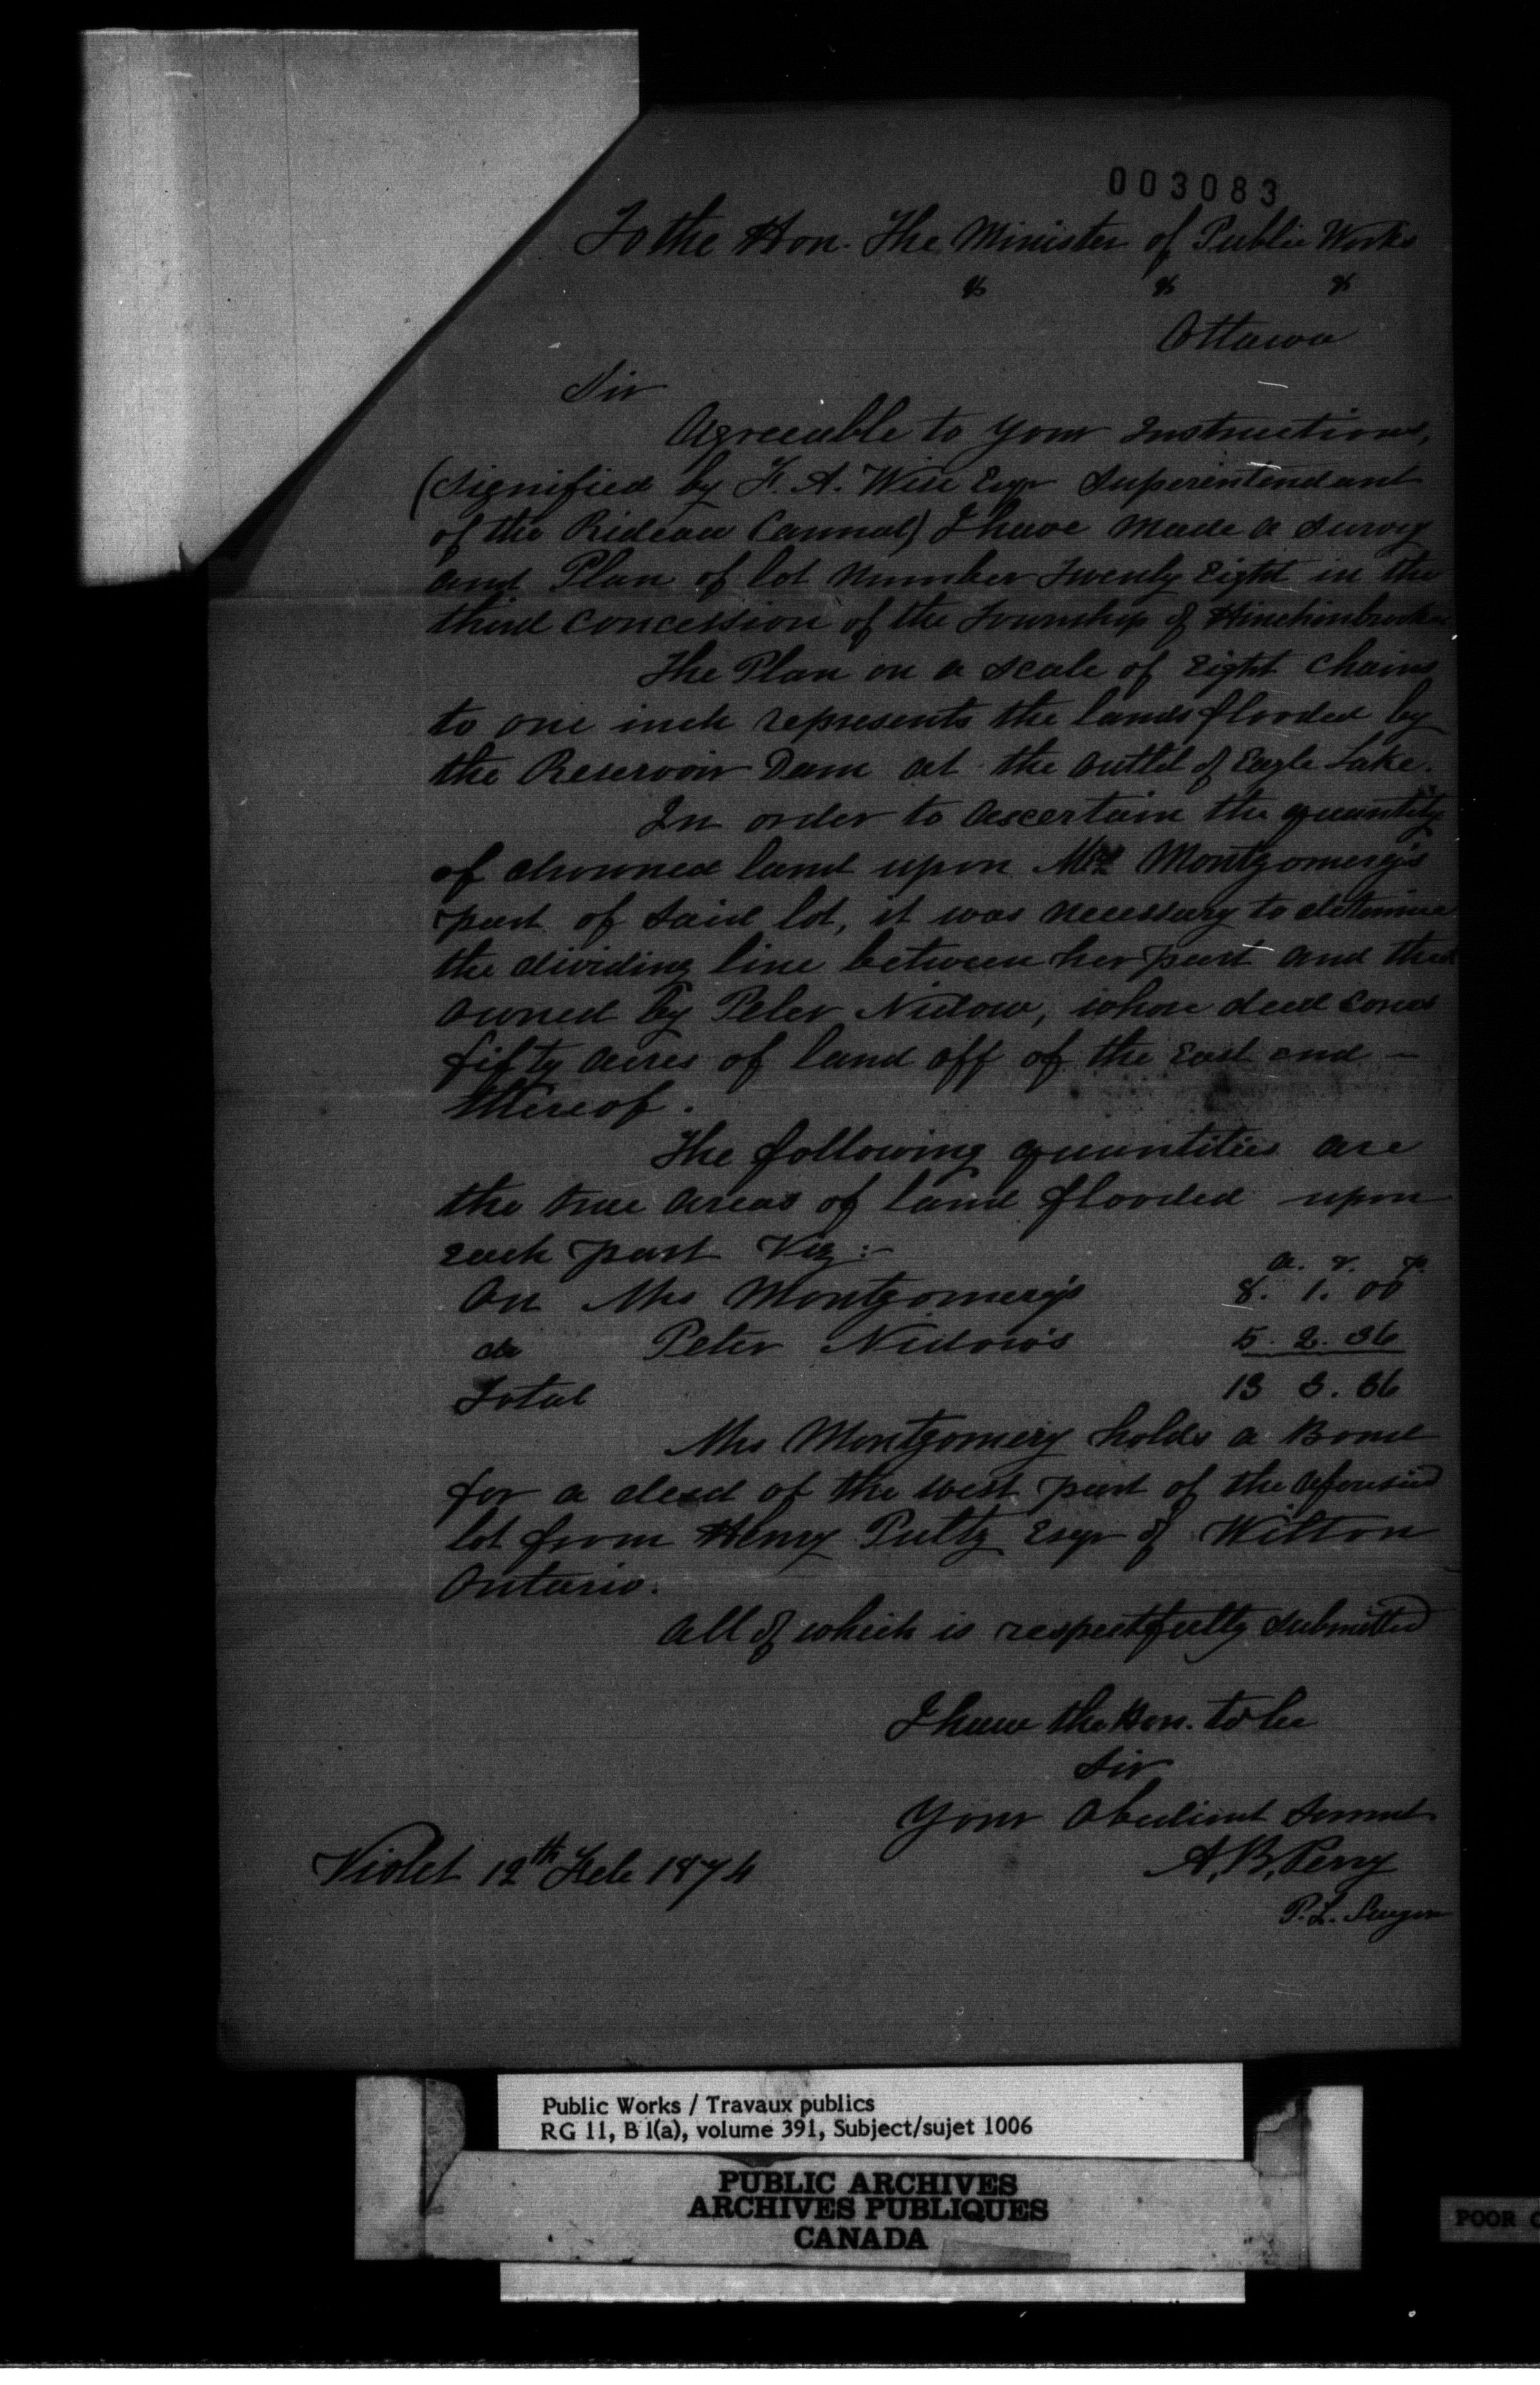 003083
To the Hon. The Minister of Public Works
& & &
Ottawa
Sir
Agreeable to your Instructions,
(signified by F. A. Wise Esqr Superintendant
of the Rideau Cannal) I have made a survey
and Plan of lot Number Twenty Eight in the
third concession of the Township of Hinchinbrooke
The Plan on a scale of Eight Chains
to one inch represents the lands flooded by
the Reservoir Dam at the outlet of Eagle Lake.
In order to ascertain the quantity
of drowned land upon Mrs Montgomery's
part of said lot, it was necessary to determine
the dividing line between her part and that
owned by Peter Nidow, whose deed covers
fifty acres of land off of the East end –
thereof.
The following quantities are
the true areas of land flooded upon
each part Viz:-
a. r. p.
On Mrs Montgomery's 8. 1. 00
do Peter Nidow's 5. 2. 36
Total 13 3. 36
Mrs Montgomery holds a Bond
for a deed of the west part of the aforesaid
lot from Henry Pultz Esqr of Wilton
Ontario.
All of which is respectfully submitted
I have the Hon. to be
Sir
Your Obedient Servant
A. B. Perry
P. L. Surveyor
Violet 12th Feb 1874
Public Works / Travaux publics
RG 11, B 1(a), volume 391, Subject/sujet 1006
PUBLIC ARCHIVES
ARCHIVES PUBLIQUES
CANADA
POOR